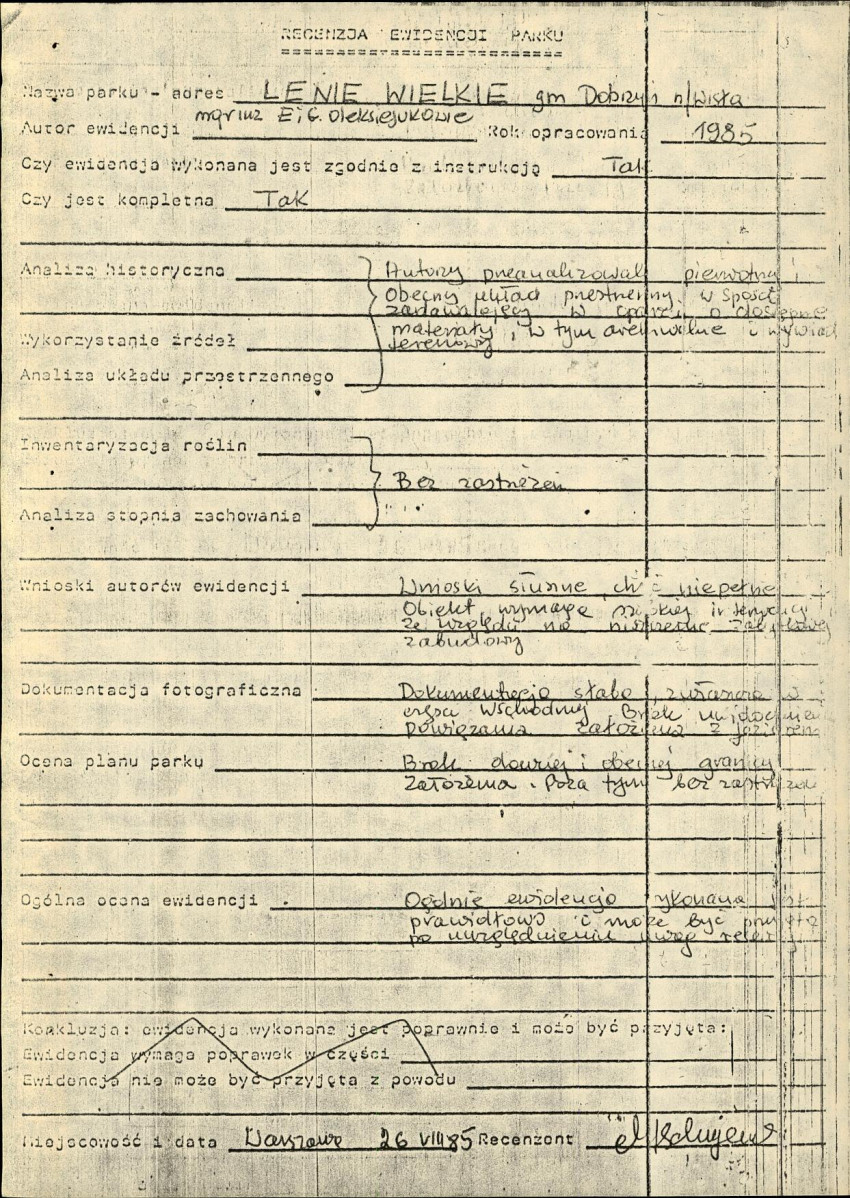 RECENZJA EWIDENCJI PARKU
Nazwa parku - adres LENIE WIELKIE gm Dobrzyń n/Wisłą
mgr inż E i G. Oleksiejukowie
Autor ewidencji Rok opracowania 1985
Czy ewidencja wykonana jest zgodnie z instrukcją Tak
Czy jest kompletna Tak
Analiza historyczna Autorzy przeanalizowali pierwotny i
Obecny układ przestrzenny, w sposób
zadawalający w oparciu o dostępne
materiały, w tym archiwalne i wywiad
Wykorzystanie źródeł terenowy
Analiza układu przestrzennego
Inwentaryzacja roślin
Bez zastrzeżeń
Analiza stopnia zachowania
Wnioski autorów ewidencji Wnioski słuszne, choć niepełne
Obiekt wymaga szybkiej interwencji
ze względu na niszczenie zabytkowej
zabudowy
Dokumentacja fotograficzna Dokumentacja słaba, zwłaszcza w
części Wschodniej. Brak
powiązania założenia z jeziorem
Ocena planu parku Brak dawnej i obecnej granicy
Założenia. Poza tym bez zastrzeżeń
Ogólna ocena ewidencji Ogólnie ewidencja wykonana jest
prawidłowo i może być przyjęta
po uwzględnieniu uwag
Konkluzja: ewidencja wykonana jest poprawnie i może być przyjęta:
Ewidencja wymaga poprawek w części
Ewidencja nie może być przyjęta z powodu
Miejscowość i data Warszawa 26 VIII 85 Recenzent